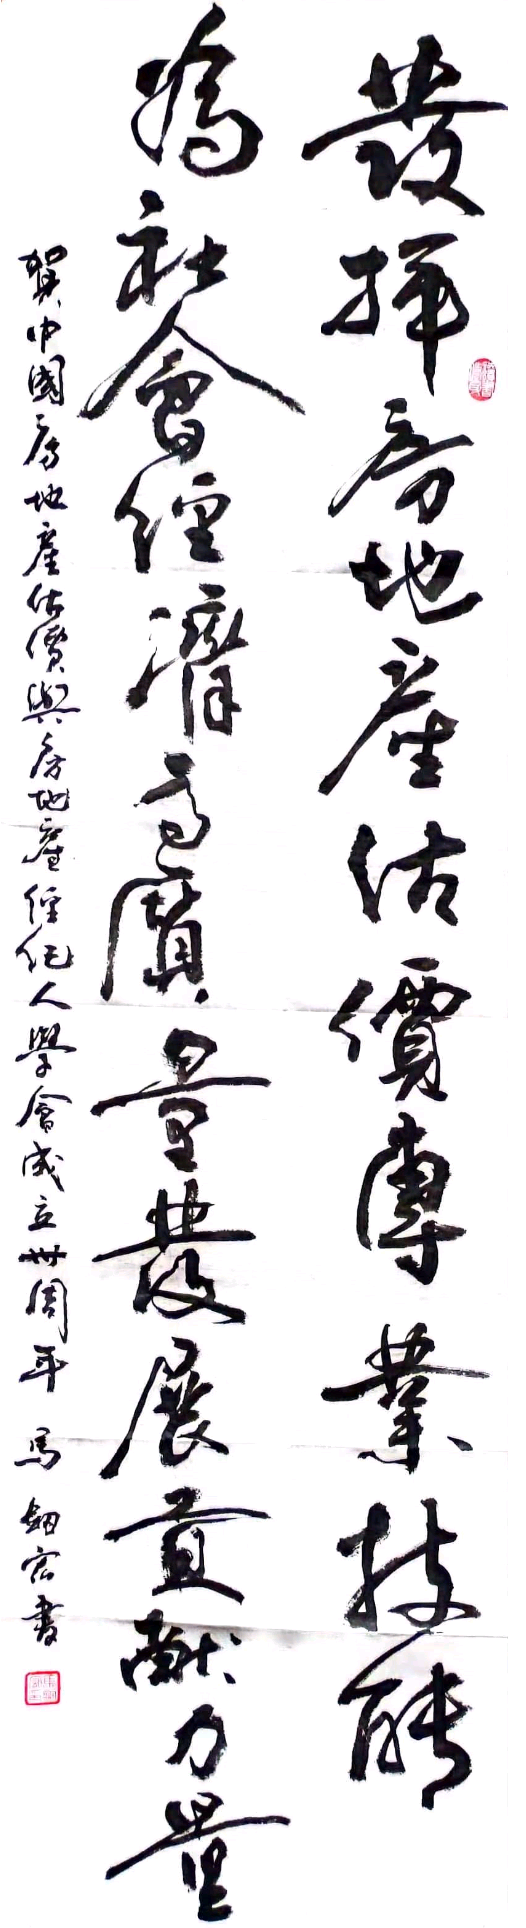 發揮房地產估價專業技能
為社會經濟高質量發展貢獻力量
賀中國房地產估價與房地產經紀人學會成立卅周年 馬 宏書